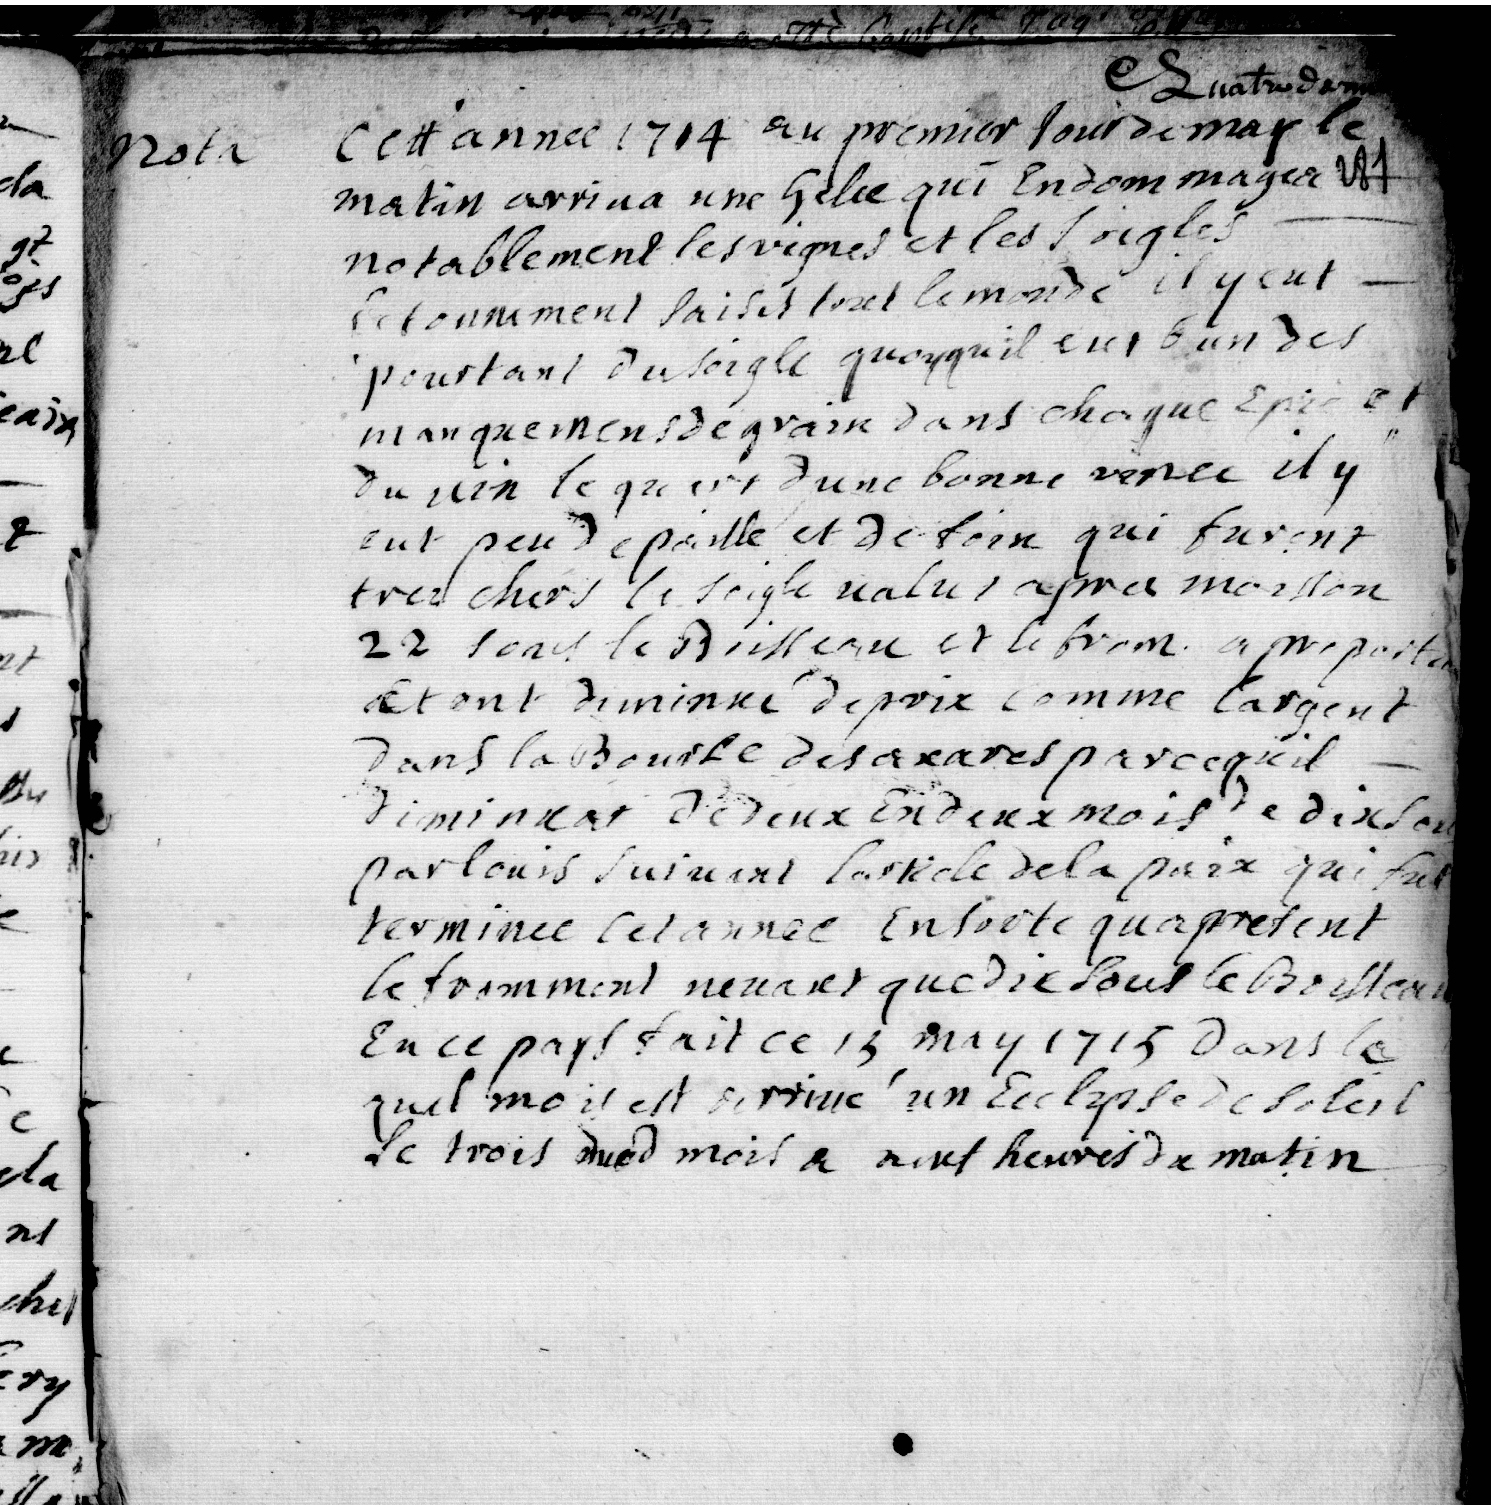 Nota
Cett annee 1714 au premier Jour de may le
281
matin arriua une Gelee qui Endommagea
notablement les vignes et les soigles
letonnement saisit tout le monde il y eut
pourtant du soigle quoyquil eut des
manquemens de grain dans chaque Epic et
du uin le quart dune bonne vinee il y
eut peu de paille et de foin qui furent
tres chers le soigle ualut apres moisson
22 sous le Boisseau et le from. a proportion
et ont diminué de prix comme largent
dans la Bourse des auares parcequil
diminuat de deux En deux mois de dix sou
par louis suiuant larticle de la paix qui fut
terminee cet annee En sorte qua present
le fromment neuaut que dix sous le Boisseau
En ce pays fait ce 15 may 1715 dans le
quel mois est arriué un Ecclypse de soleil
Le trois dud mois a neuf heures du matin